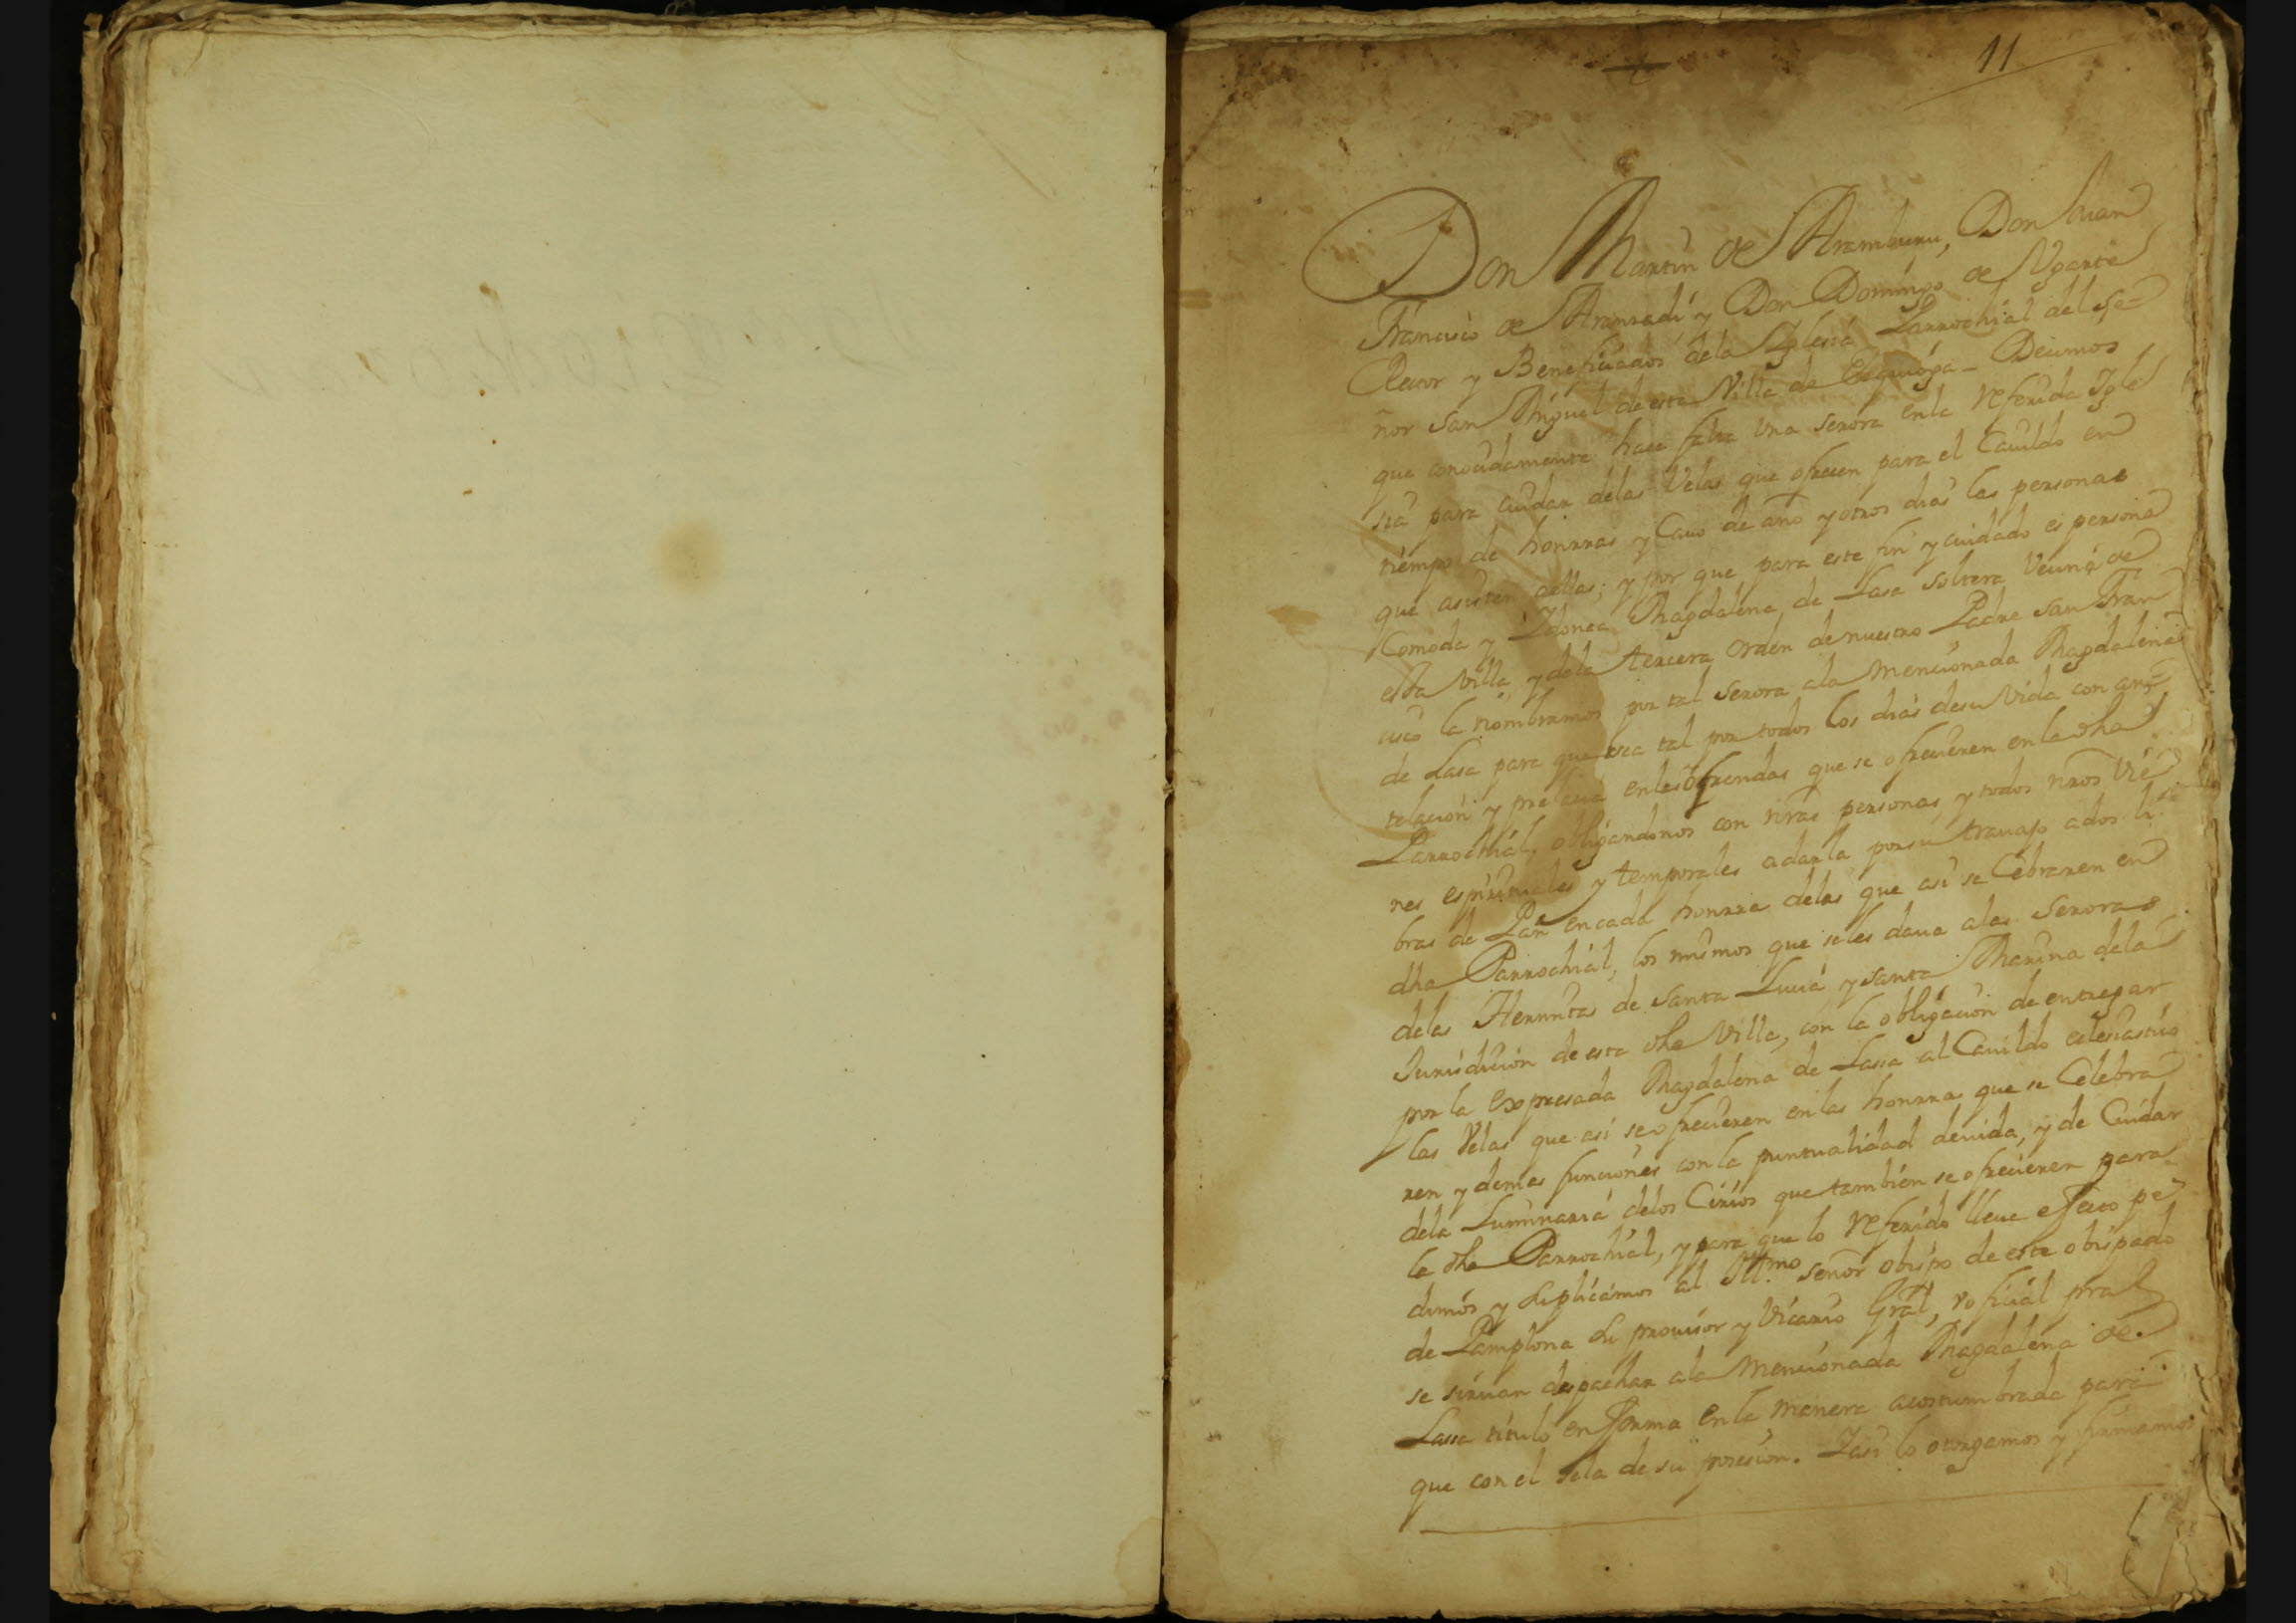 11
Don Martin de Aramburu, Don Juan
Francisco de Aranzadi y Don Domingo de Vgarte
Rector y Beneficiados dela Iglesia Parrochial del Se=
ñor San Miguel de esta Villa de Ezquioga _ Decimos
que conocidamente hace falta vna serora enla referida Igle
sia para cuidar delas Velas que ofrecen para el Cauildo en
tiempo de honrras y Cauo de año y otros dias las personas
que asisten aellas; y por que para este fin y cuidado es persona
Comoda y Idonea Magdalena de Lasa soltera vecina de
esta villa, y dela tercera orden de nuestro Padre San Fran
cisco la nombramos por tal Serora ala mencionada Magdalena
de Lasa para que sea tal por todos los dias desu vida con an=
telacion y presencia enlas ofrendas que se ofrecieren en la dha
Parrochial, obligandonos con nras personas, y todos nros vie
nes espirituales y temporales adarla porsu trauajo ados li
bras de Pan encada honrra delas que asi se Cebraren en
dha Parrochial, los mismos que seles daua alas Seroras
delas Hermitas de Santa Lucia y Santa Marina dela
Jurisdicion de esta dha Villa, con la obligacion de entregar
por la expresada Magdalena de Lassa al Cauildo eclesiastico
las Velas que asi se ofrecieren en las honrras que se Celebra
ren y demas funciones con la puntualidad deuida, y de Cuidar
dela Luminaria delos Cirios que tambien se ofrecieren para
la dha Parrochial, y para que lo referido lleue efecto pe
dimos y suplicamos al Illmo señor obispo de este obispado
de Pamplona su prouisor y Vicario Gral, v oficial pral
se siruan despachar ala mencionada Magdalena de
Lassa titulo en forma enla manera acostumbrada para
que con el sela de su posesion. Yasi lo otorgamos y firmamos